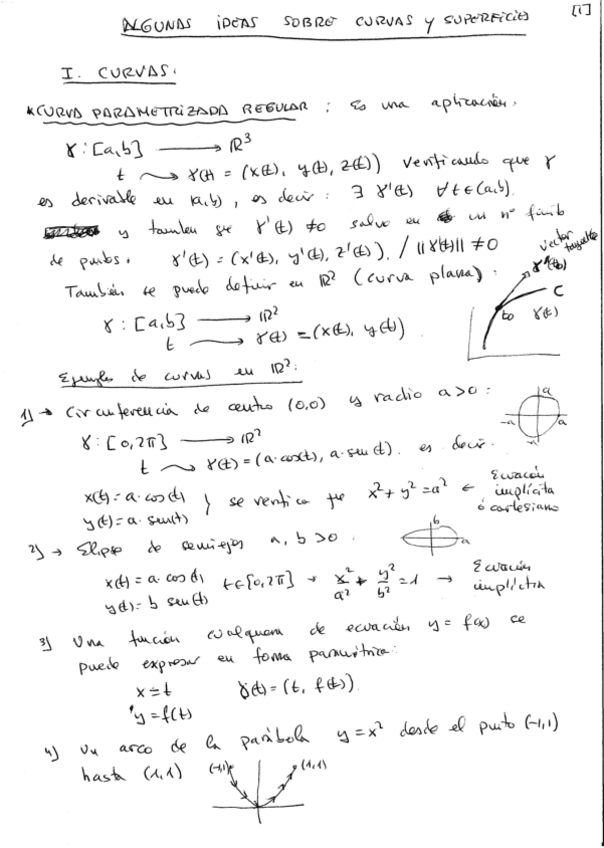 ALGUNAS IDEAS SOBRE CURVAS y SUPERFICIES [1]
I. CURVAS:
* CURVA PARAMETRIZADA REGULAR : Es una aplicación.
γ : [a,b] ⟶ ℝ³
t ⤳ γ(t) = (x(t), y(t), z(t)) verificando que γ
es derivable en (a,b), es decir : ∃ γ'(t) ∀t∈(a,b).
y tambien que γ'(t) ≠0 salvo en un nº finito
de puntos. γ'(t) = (x'(t), y'(t), z'(t)). / ||γ'(t)|| ≠ 0
También se puede definir en ℝ² (curva plana) :
γ : [a,b] ⟶ ℝ²
t ⤳ γ(t) = (x(t), y(t)).
vector
tangente
γ'(t0)
C
t0 γ(t)
Ejemplos de curvas en ℝ²:
1) → Circunferencia de centro (0,0) y radio a>0 :
γ : [0,2π] ⟶ ℝ²
t ⤳ γ(t) = (a·cos(t), a·sen(t)). es decir.
a
-a a
-a
x(t) = a·cos(t)
y(t) = a·sen(t) } se verifica que x²+y²=a² ← Ecuación implícita ó cartesiana
2) → Elipse de semiejes a, b >0 .
b
a
x(t) = a·cos(t) t∈[0,2π] → x²/a² + y²/b² = 1 → Ecuación implícita
y(t) = b sen(t)
3) Una función cualquiera de ecuación y = f(x) se
puede expresar en forma paramétrica:
x = t γ(t) = (t, f(t)).
y = f(t)
4) Un arco de la parábola y = x² desde el punto (-1,1)
hasta (1,1)
(-1,1) (1,1)